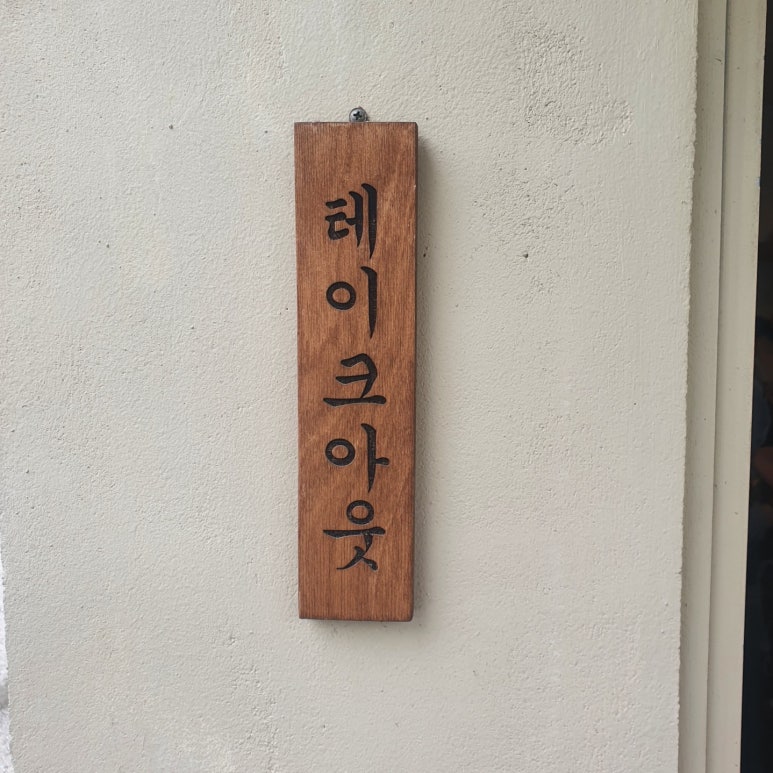 테이크아웃